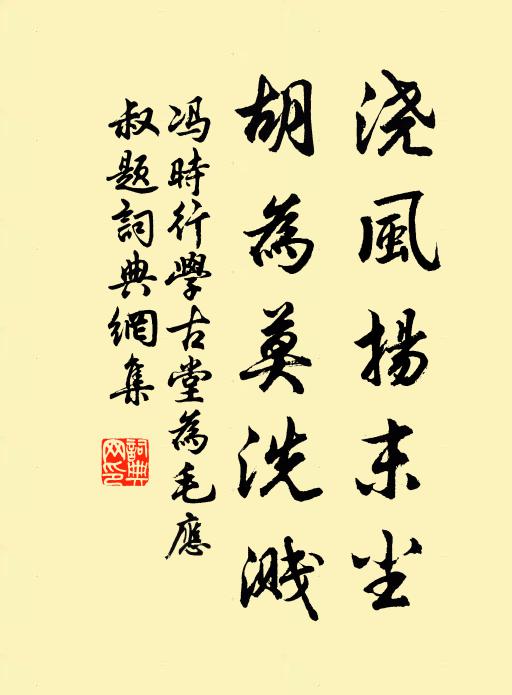 浇風揚末尘
胡為莫洗溅
冯時行學古堂為毛應
叔题詞典網集
詞典网印